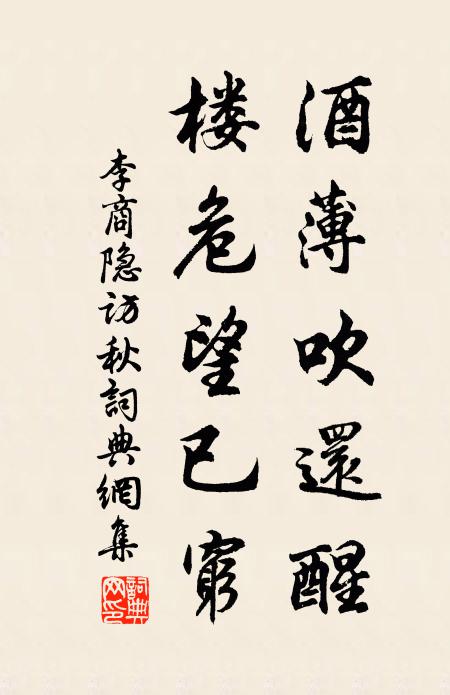 酒薄吹還醒
楼危望已窮
李商隐访秋詞典網集
詞典网印